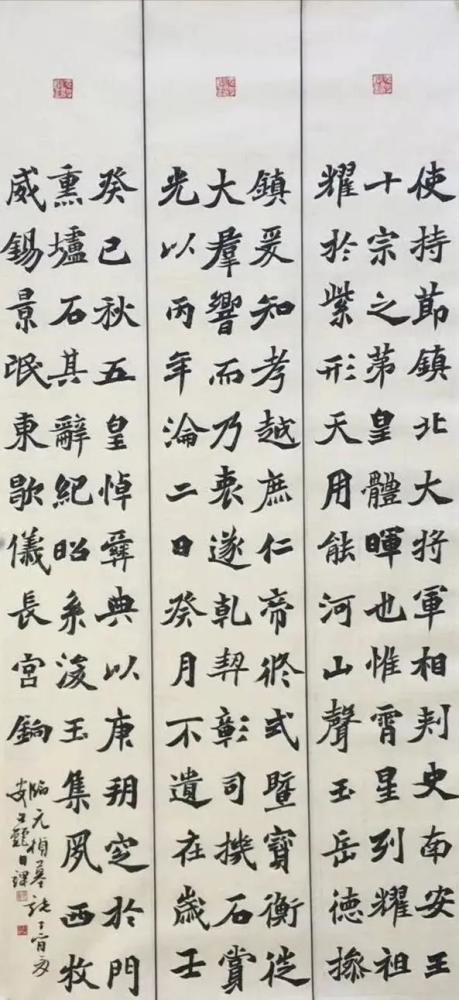 使持節鎮北大將軍相刾史南安王
十宗之苐皇體暉也惟霄星列耀祖
耀於紫形天用能河山聲玉岳德摻
鎮爰知考越庶仁帝終式暨寶衡從
大羣響而乃衷遂乾契彰司機石賞
光以丙年淪二日癸月不遺在歲壬
癸巳秋五皇悼彝典以庚朔窆於門
熏壚石其辭紀昭系浚玉集夙西牧
威錫景氓東歇儀長宮鉤
臨元楨墓誌丁酉夏
日課